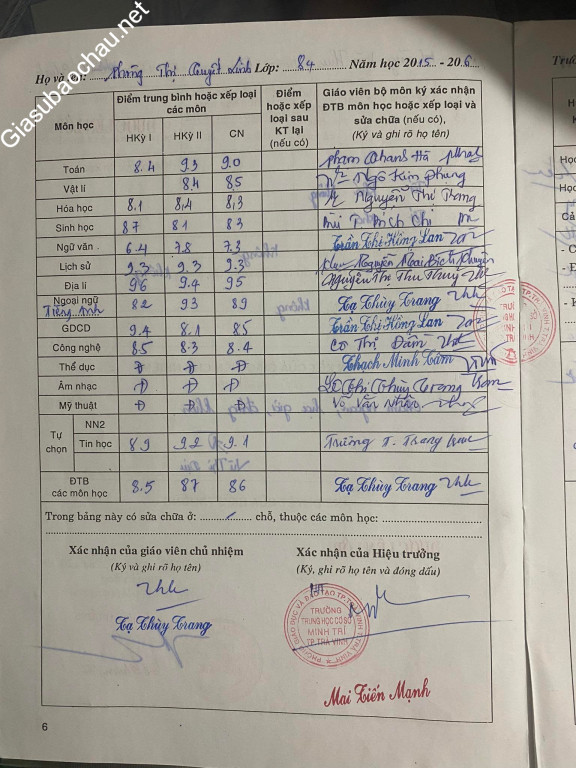 Giasubaochau.net
Họ và tên: Phùng Thị Tuyết Linh Lớp: 8.4 Năm học 2015 - 20.6
Môn học
Điểm trung bình hoặc xếp loại các môn
Điểm hoặc xếp loại sau KT lại (nếu có)
Giáo viên bộ môn ký xác nhận ĐTB môn học hoặc xếp loại và sửa chữa (nếu có),
(Ký và ghi rõ họ tên)
HKỳ I HKỳ II CN
Toán 8.4 9.3 9.0
Vật lí 8.4 8.5 Ngô Kim Phụng
Hóa học 8.1 8.4 8.3 Nguyễn Thị Trang
Sinh học 8.7 8.1 8.3 Bích Chi
Ngữ văn 6.4 7.8 7.3 Trần Thị Hồng Lan
Lịch sử 9.3 9.3 9.3 Nguyễn Ngọc Bích
Địa lí 9.6 9.4 9.5 Nguyễn Thị Thu Thủy
Ngoại ngữ 8.2 9.3 8.9 Tạ Thùy Trang
Tiếng Anh
GDCD 9.4 8.1 8.5 Trần Thị Hồng Lan
Công nghệ 8.5 8.3 8.4 Cô Thị Đầm
Thể dục Đ Đ Đ Thạch Minh Tâm
Âm nhạc Đ Đ Đ
Mỹ thuật Đ Đ Đ Võ Văn Nhân
Tự chọn
NN2
Tin học 8.9 9.2 9.1 Trương T. Trang
ĐTB các môn học 8.5 8.7 8.6 Tạ Thùy Trang
Trong bảng này có sửa chữa ở: chỗ, thuộc các môn học:
Xác nhận của giáo viên chủ nhiệm
(Ký và ghi rõ họ tên)
Tạ Thùy Trang
Xác nhận của Hiệu trưởng
(Ký, ghi rõ họ tên và đóng dấu)
TRƯỜNG
TRUNG HỌC CƠ SỞ
MINH TRÍ
TP.TRÀ VINH
Mai Tiến Mạnh
6